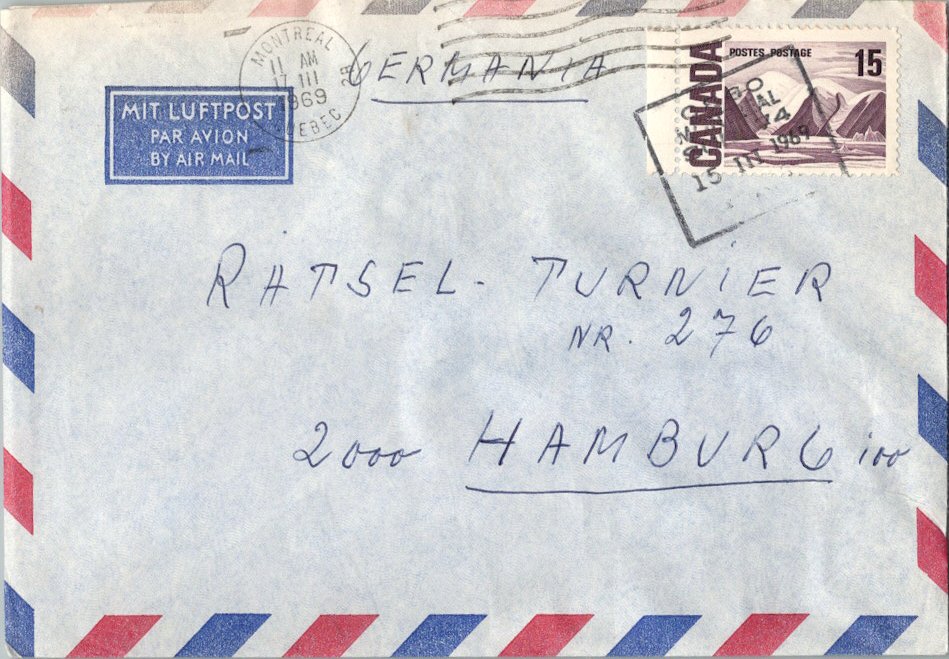 MONTREAL
11 AM
17 III
1969
QUEBEC
GERMANIA
MIT LUFTPOST
PAR AVION
BY AIR MAIL
CANADA
POSTES POSTAGE
15
15 III 1969
RATSEL-TURNIER
NR. 276
2000 HAMBURG 100